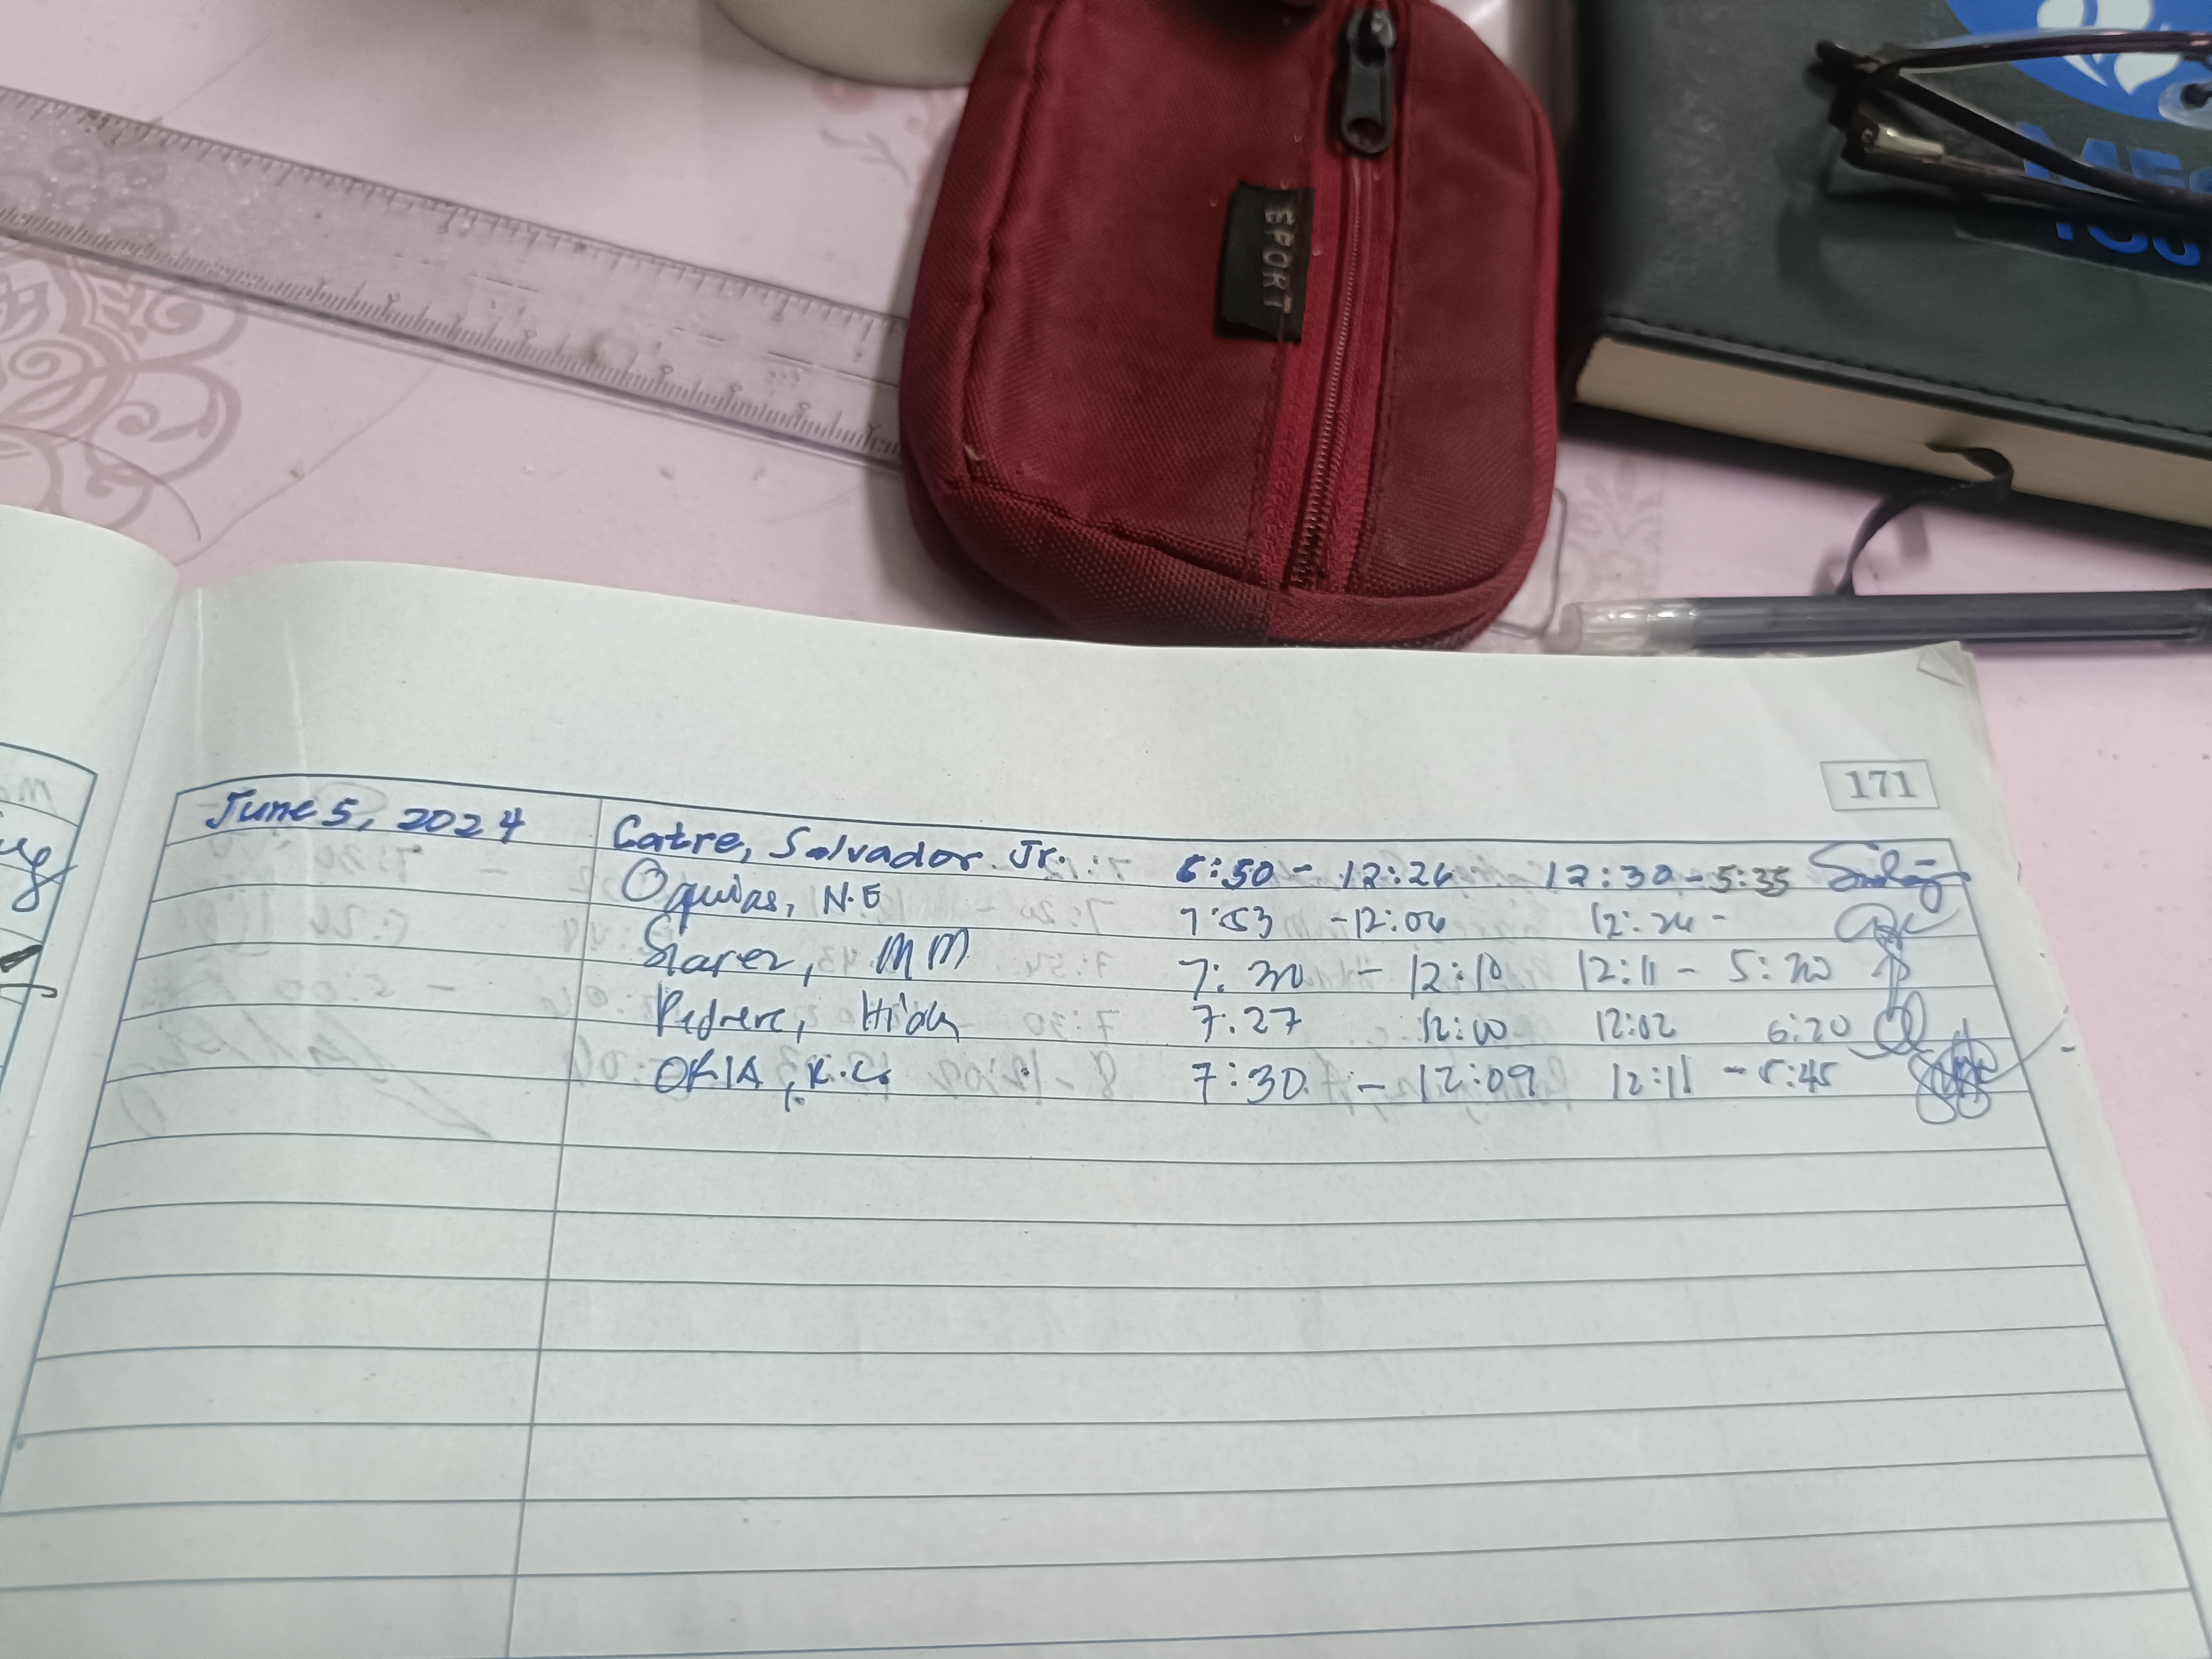 EPORT
171
June 5, 2024 Catre, Salvador Jr. 6:50 - 12:26 12:30 - 5:35
Oquias, N.E 7:53 - 12:06 12:26 -
MM 7:30 - 12:10 12:11 - 5:30
7:27 12:00 12:02 6:20
OKIA, K.C. 7:30 - 12:09 12:11 - 5:45